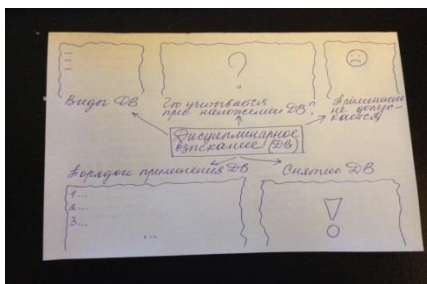 ?
Виды ДВ
Что учитывается
при наложении ДВ?
Применение
не допус-
кается
Дисциплинарное
взыскание (ДВ)
Порядок применения ДВ
Снятие ДВ
1...
2...
3...
...
!